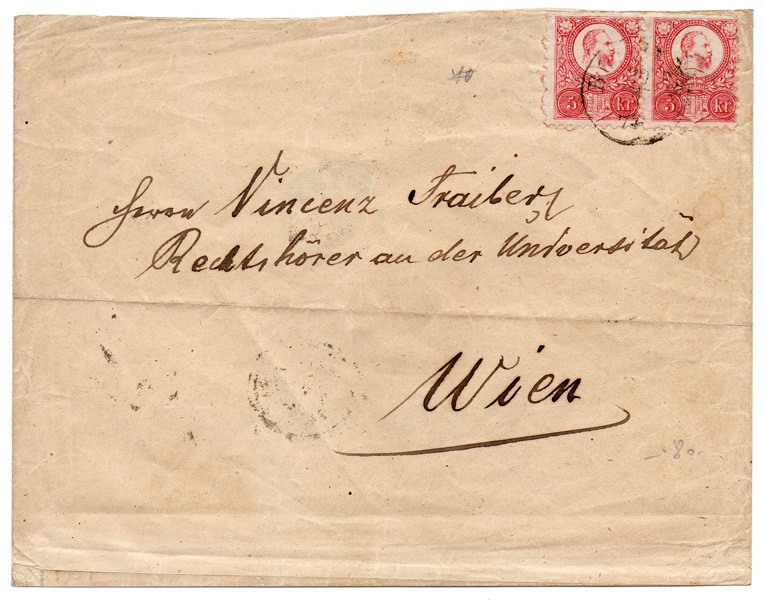 5 Kr 5 Kr
Herrn Vincenz Traiber
Rechtshörer an der Universität
Wien
80.